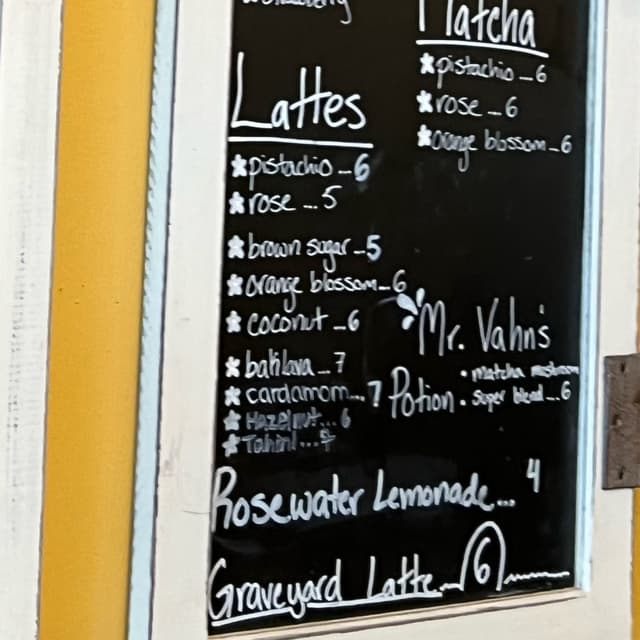 Matcha
pistachio - 6
rose ... 6
orange blossom - 6
Lattes
pistachio - 6
rose ... 5
brown sugar - 5
orange blossom - 6
coconut - 6
baklava - 7
cardamom ... 7
Hazelnut ... 6
Tahini ...
Mr. Vahn's
Potion
• matcha mushroom
• super blend ... 6
Rosewater Lemonade ... 4
Graveyard Latte ... 6